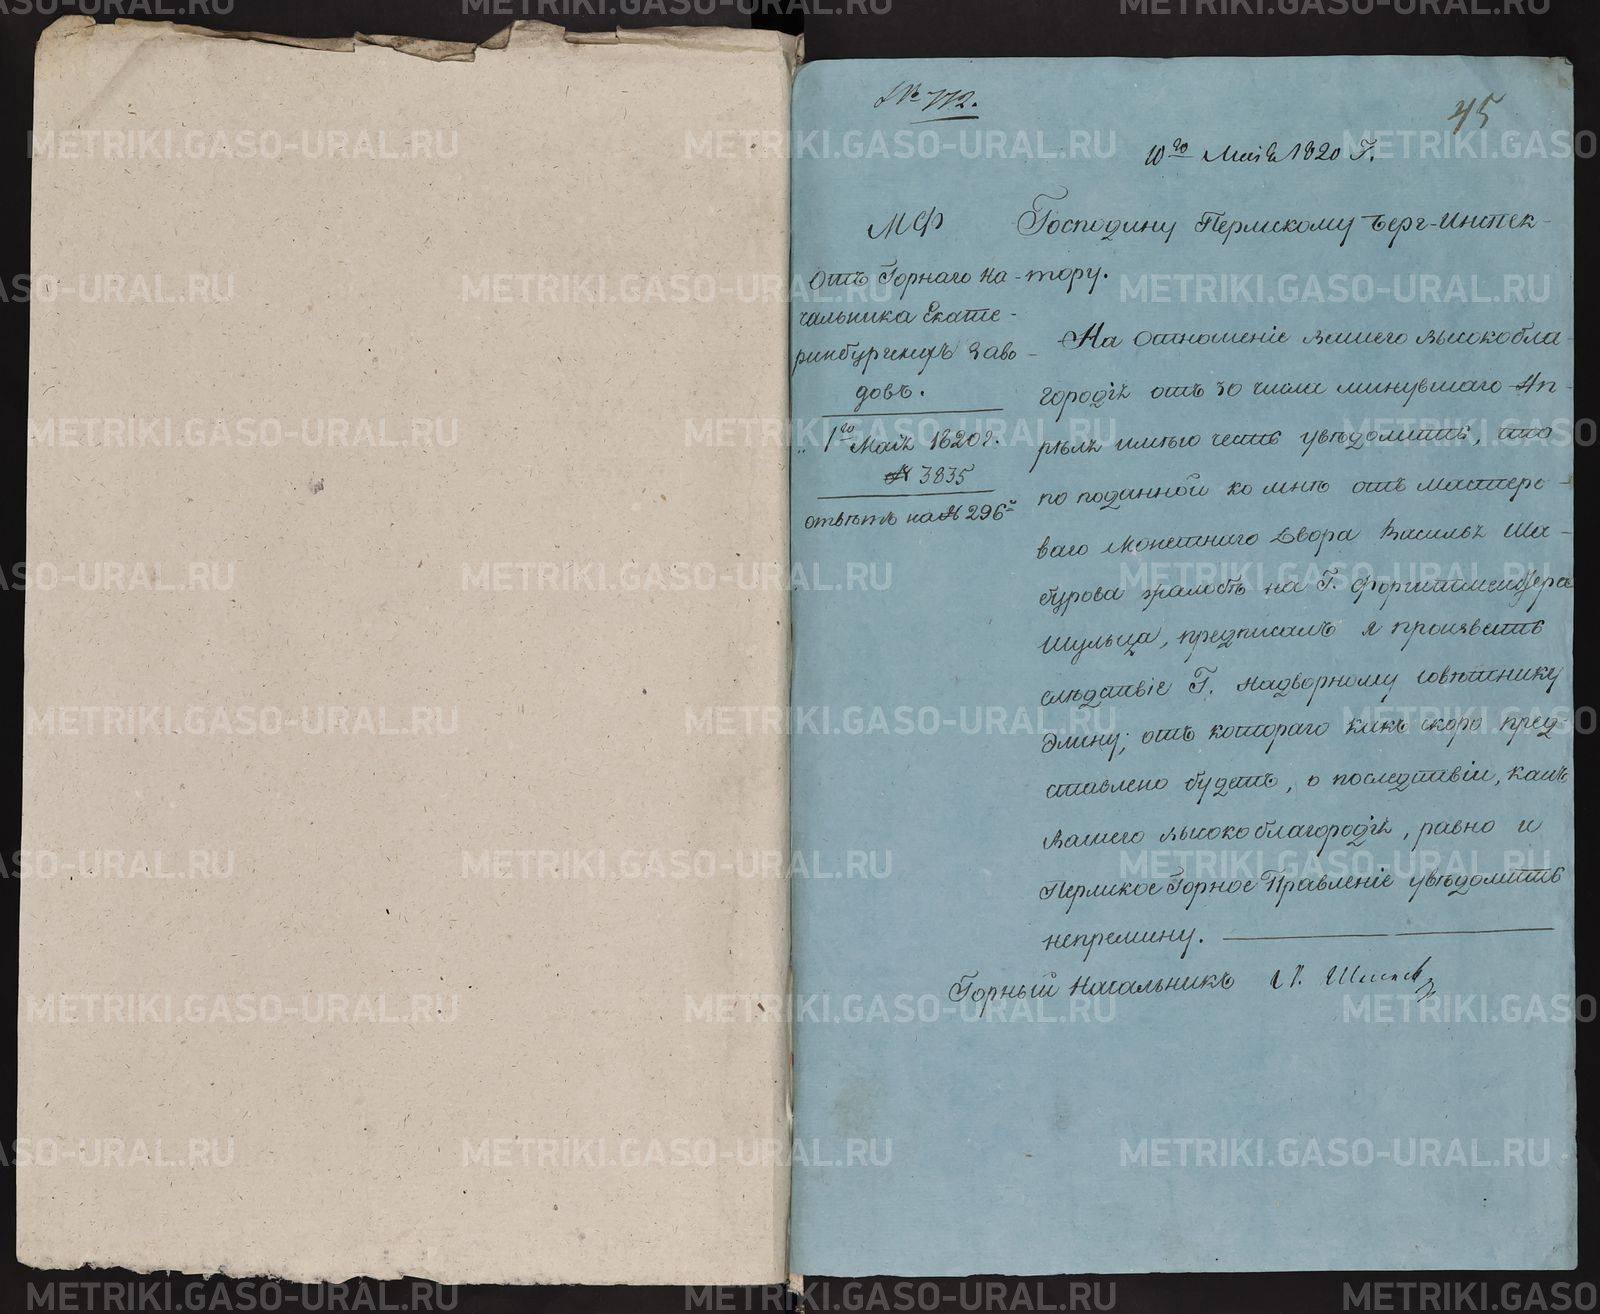 № 772.
45
10го Маiя 1820 Г.
МФ
Отъ Горнаго На-
чальника Екате-
ринбургскихъ Заво-
довъ.
1го Маiя 1820 г.
№ 3835
отвѣтъ на № 296й
Господину Пермскому Берг-Инспек-
тору.
На отношенiе Вашего Высокобла-
городiя отъ 30 числа минувшаго Ап-
рѣля имѣю честь увѣдомить, что
по поданной ко мнѣ отъ мастеро-
ваго Монетнаго Двора Василья Ша-
бурова жалобѣ на Г. Форштмейстера
Шульца, предписалъ я произвесть
слѣдствiе Г. Надворному совѣтнику
Элину; отъ котораго какъ скоро пред-
ставлено будетъ, о последствiи, какъ
Вашего высокоблагородiя, равно и
Пермское Горное Правленiе увѣдомить
непремину.
Горный Начальникъ
METRIKI.GASO-URAL.RU